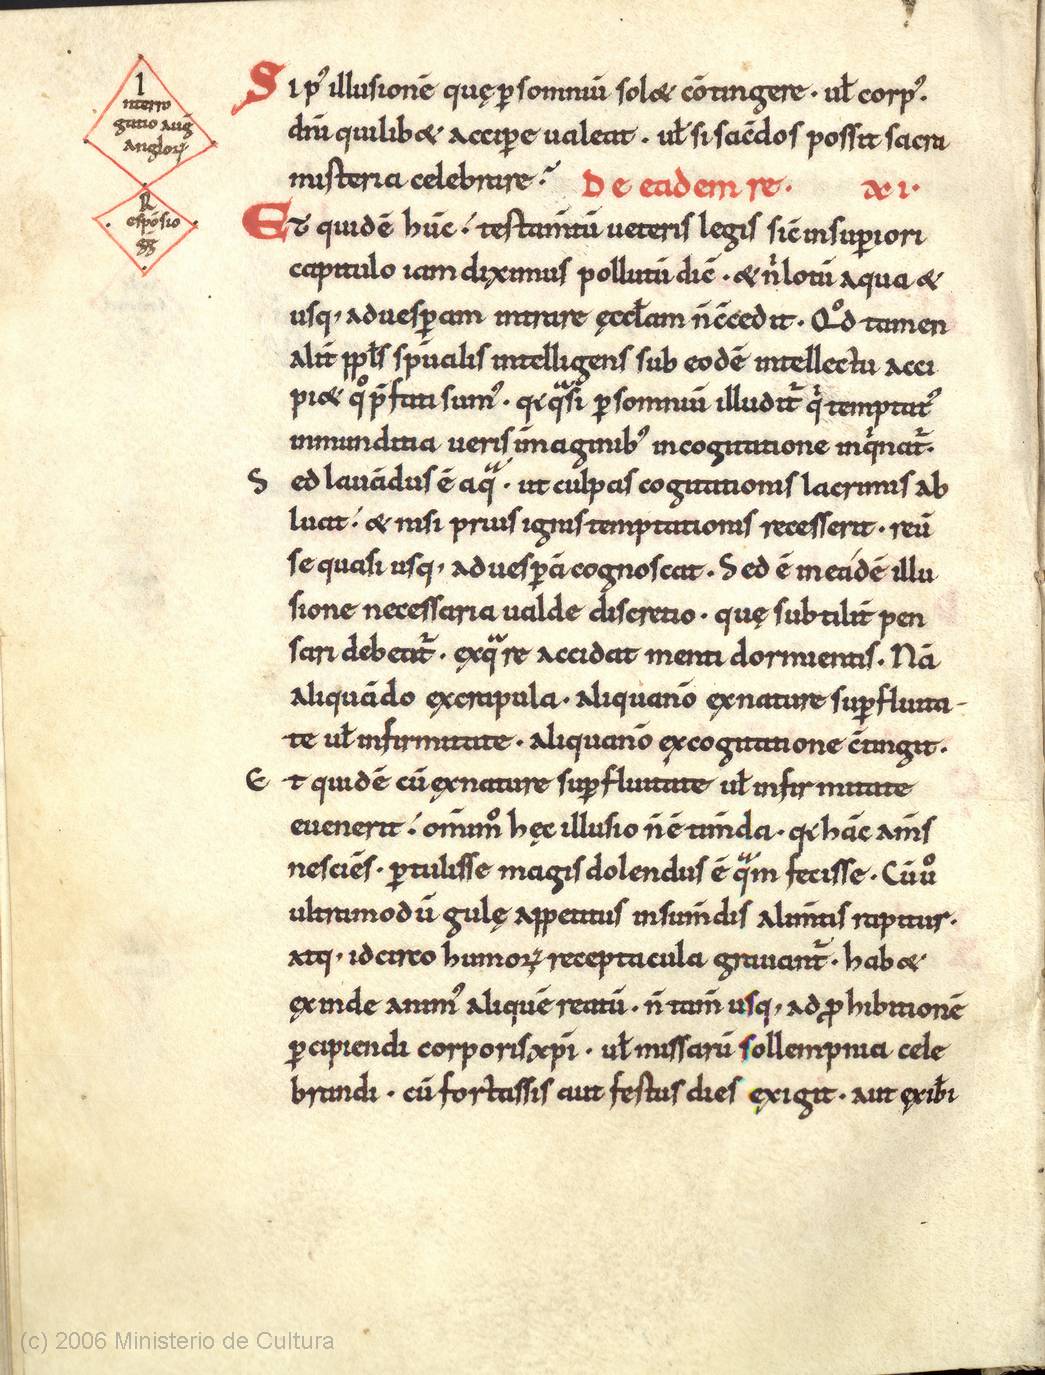 I
nterro
gatio aug̅
angloꝝ
R̅
espōsio
gg̅
Si pꝰ illusionē quę ꝑ somniū solet cōtingere · ul̅ corpꝰ ·
dn̅i quilibet accipe ualeat · ul̅ si sac̅dos possit sacra
misteria celebrare · De eadem re · xi ·
Et quidē hūc · testam̅tū ueteris legis sic̅ in supiori
capitulo iam diximus pollutū dic̅ · et n̅ lotū aqua et
usq, ad uesꝑam intrare ęccl̅am n̅ c̅cedit · Qd̊ tamen
alit̅ ppl̅s sp̅ualis intelligens sub eodē intellectu acci
piet q̊ p̅fati sumꝰ · q̅ qͣsi ꝑ somniū illudit̅ q temptatꝰ
inmunditia ueris imaginibꝰ in cogitatione inqͥnat̅ ·
Sed lauādus ē aqͣ · ut culpas cogitationis lacrimis ab
luat · et nisi prius ignis temptationis recesserit · reū
se quasi usq, ad uesꝑā cognoscat · Sed ē in eādē illu
sione necessaria ualde discretio · quę subtilit̅ pen
sari debeat̅ · ex qͣ re accidat menti dormientis · Nā
aliquādo ex crapula · aliquan̅o ex nature suꝑfluita-
te ul̅ infirmitate · aliquan̅o ex cogitatione c̅tingit ·
Et quidē cū ex nature suꝑfluitate ul̅ infirmitate
euenerit · omim̊ hęc illusio n̅ ē tim̅da · q̅ hāc anim̅s
nesciēs · ꝑtulisse magis dolendus ē qͣm fecisse · Cū uͦ
ultra modū gulę appetitus in sum̅dis alim̅tis rapitur ·
atq, idcirco humoꝝ receptacula grauant̅ · habet
exinde animꝰ aliquē reatū · n̅ tam̅ usq, ad ꝓhibitionē
ꝑcipiendi corporis xp̅i · ul̅ missarū sollempnia cele
brandi · cū fortassis aut festus dies exigit · aut exib̅i
(c) 2006 Ministerio de Cultura